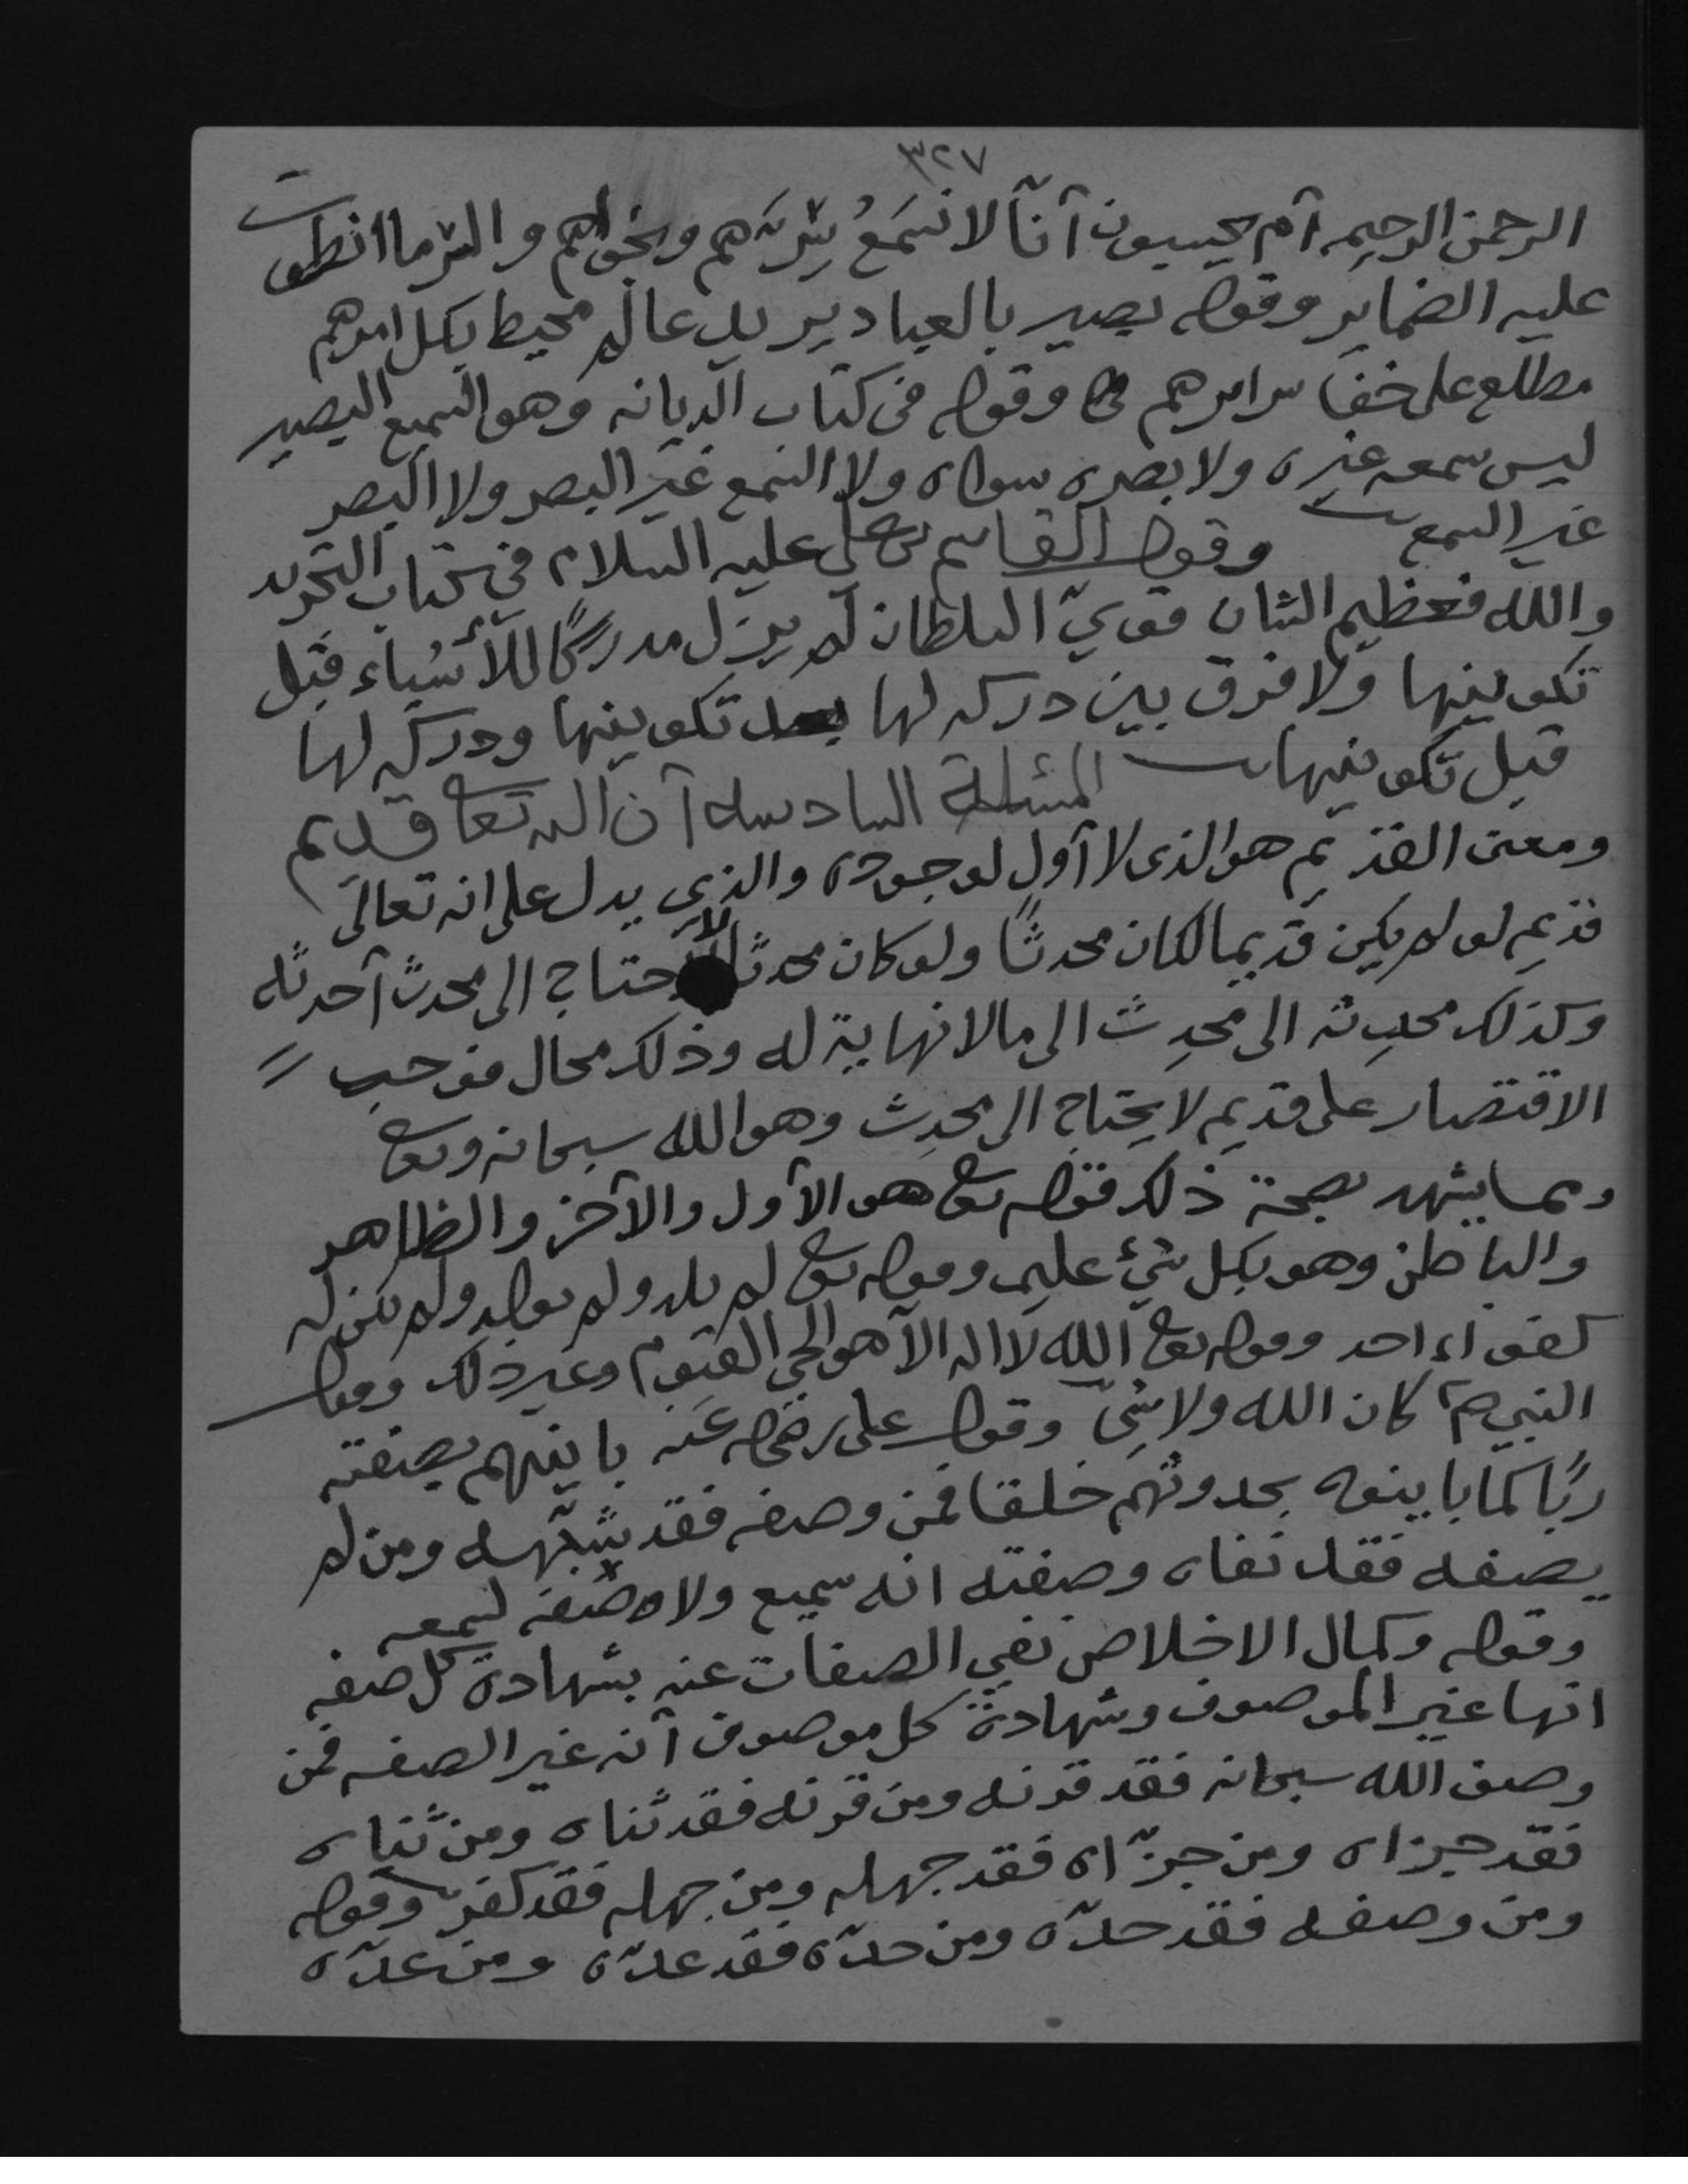 ٣٢٧
الرحمن الرحيم آم يحسبون آنّا لا نسَمَعُ سِرّهم ونجواهم والسّر ما انطوت
عليه الضماير وقوله بصير بالعباد يريد عالم محيط بكل امرهم
مطلع على خفا سرايرهم وقوله في كتاب الديانه وهو السميع البصير
ليس سمعه غيره ولا بصره سواه ولا السمع غير البصر ولا البصر
غير السمع وقول القاسم بن علي عليه السلام في كتاب التجريد
والله فعظيم الشان قويّ السلطان لم يزل مدركًا للأشياء قبل
تكوينها ولا فرق بين دركه لها بعد تكوينها ودركه لها
قبل تكوينها المسئلة السادسه آن الله تعا قديم
ومعنى القديم هو الذى لا آول لوجوده والذي يدل على انه تعالى
قديم لو لم يكن قديما لكان محدثًا ولو كان محدثا لاحتاج الى محدث آحدثه
وكذلك محدِثه الى محدِث الى ما لا نهاية له وذلك محال فوجب
الاقتصار على قديم لا يحتاج الى محدِث وهو الله سبحانه وتعا
ومما يشهد بصحة ذلك قوله تعا هو الآول والآخر والظاهر
والباطن وهو بكل شيء عليم وقوله تعا لم يلد ولم يولد ولم يكن له
كفوا احد وقوله تعا الله لا اله الا هو الحي القيوم وغير ذلك وقول
النبي صم كان الله ولا شي وقول علي رضي الله عنه باينهم بصفته
ربًا كما باينوه بحدوثهم خلقا فمن وصفه فقد شبّهه ومن لم
يصفه فقد نفاه وصفته انه سميع ولا صفه لسمعه
وقوله وكمال الاخلاص نفي الصفات عنه بشهادة كل صفه
انها غير الموصوف وشهادة كل موصوف آنه غير الصفه فمن
وصف الله سبحانه فقد قرنه ومن قرنه فقد ثناه ومن ثناه
فقد جزاه ومن جزّاه فقد جهله ومن جهله فقد كفر وقوله
ومن وصفه فقد حدّه ومن حدّه فقد عدّه ومن عدّه